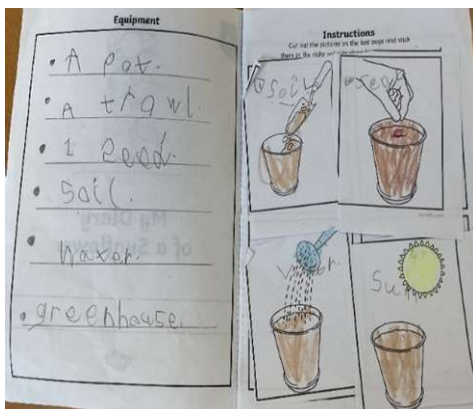 Equipment
• A pot.
• A trawl.
• 1 seed.
• Soil.
• water.
• greenhouse.
Instructions
Cut out the pictures on the last page and stick
them in the right
Soil
Seed
water.
Sun
My Diary
of a Sunflower